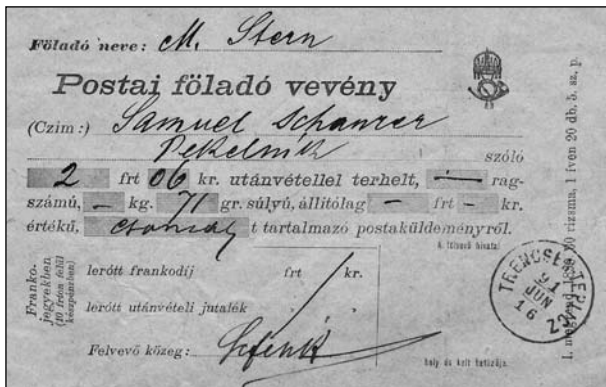 Föladó neve: M. Stern
Postai föladó vevény
(Czim:) Samuel Schanzer
Pekelnik szóló
2 frt 06 kr. utánvétellel terhelt, — rag-
számú, — kg. 71 gr. súlyú, állitólag — frt — kr.
értékű, t tartalmazó postaküldeményről.
A fölvevő hivatal
Franko-
jegyekben
(10 frton felül
készpénzben)
lerótt frankodij frt kr.
lerótt utánvételi jutalék
Felvevő közeg:
hely és kelt
TRENCSÉN-TEPLA
91
JUN
16